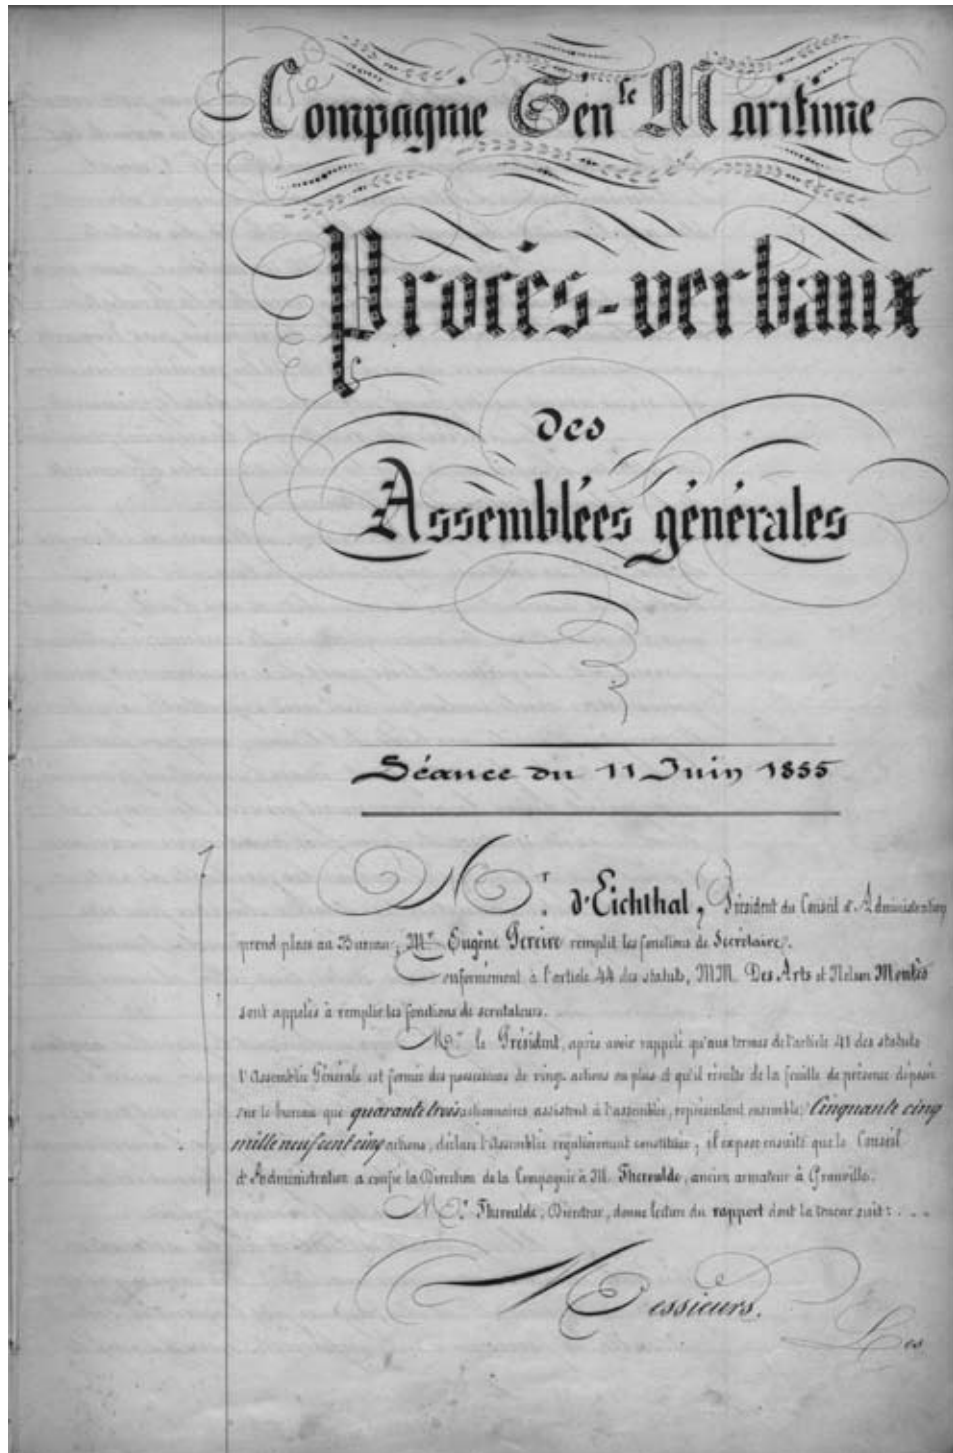 Compagnie Génle Maritime
Procès-verbaux
des
Assemblées générales
Séance du 11 Juin 1855
Mr. d'Eichthal, Président du Conseil d'Administration,
prend place au Bureau; Mr Eugène Pereire remplit les fonctions de Secrétaire.
Conformément à l'article 44 des statuts, MM. Des Arts et Nelson Montès
sont appelés à remplir les fonctions de scrutateurs.
Mr. le Président, après avoir rappelé qu'aux termes de l'article 41 des statuts
l'Assemblée Générale est formée des possesseurs de vingt actions ou plus et qu'il résulte de la feuille de présence déposée
sur le bureau que quarante trois actionnaires assistent à l'assemblée, représentant ensemble, Cinquante cinq
mille neuf cent cinq actions, déclare l'Assemblée régulièrement constituée; il expose ensuite que le Conseil
d'Administration a confié la Direction de la Compagnie à M. Theroulde, ancien armateur à Granville.
Mr. Theroulde, Directeur, donne lecture du rapport dont la teneur suit: . . .
Messieurs.
Les